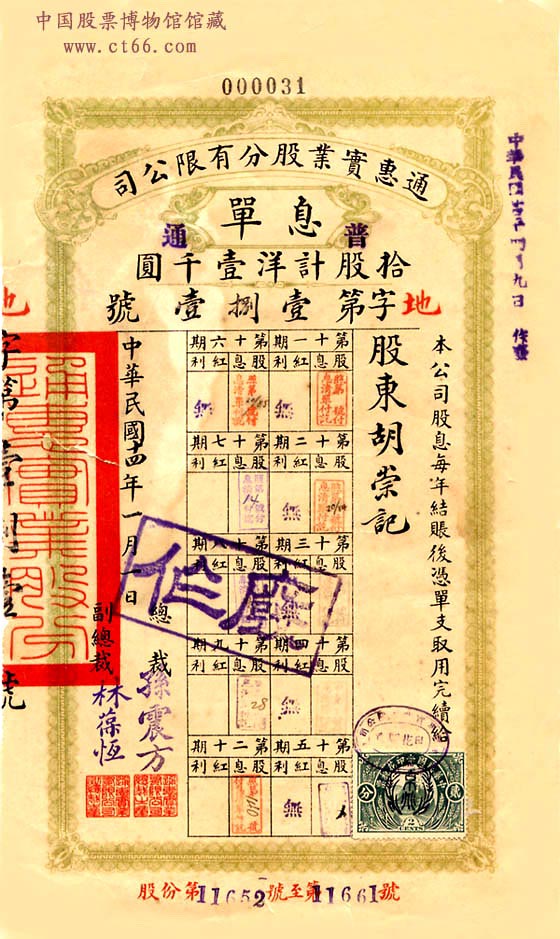 中国股票博物馆馆藏
www.ct66.com
000031
通惠實業股分有限公司
息單
普通
拾股計洋壹千圓
地字第壹捌壹號
本公司股息每年結賬後憑單支取用完續給
股東胡崇記
第十一期
股息紅利
無
第十二期
股息紅利
無
第十三期
股息紅利
無
第十四期
股息紅利
無
第十五期
股息紅利
無
第十六期
股息紅利
無
第十七期
股息紅利
14
第十八期
股息紅利
第十九期
股息紅利
28
第二十期
股息紅利
中華民國十四年一月一日
總裁
孫震方
副總裁
林葆恆
作廢
地字第壹捌壹號
通惠實業股分
貳分
2
CENTS
股份第11652號至第11661號